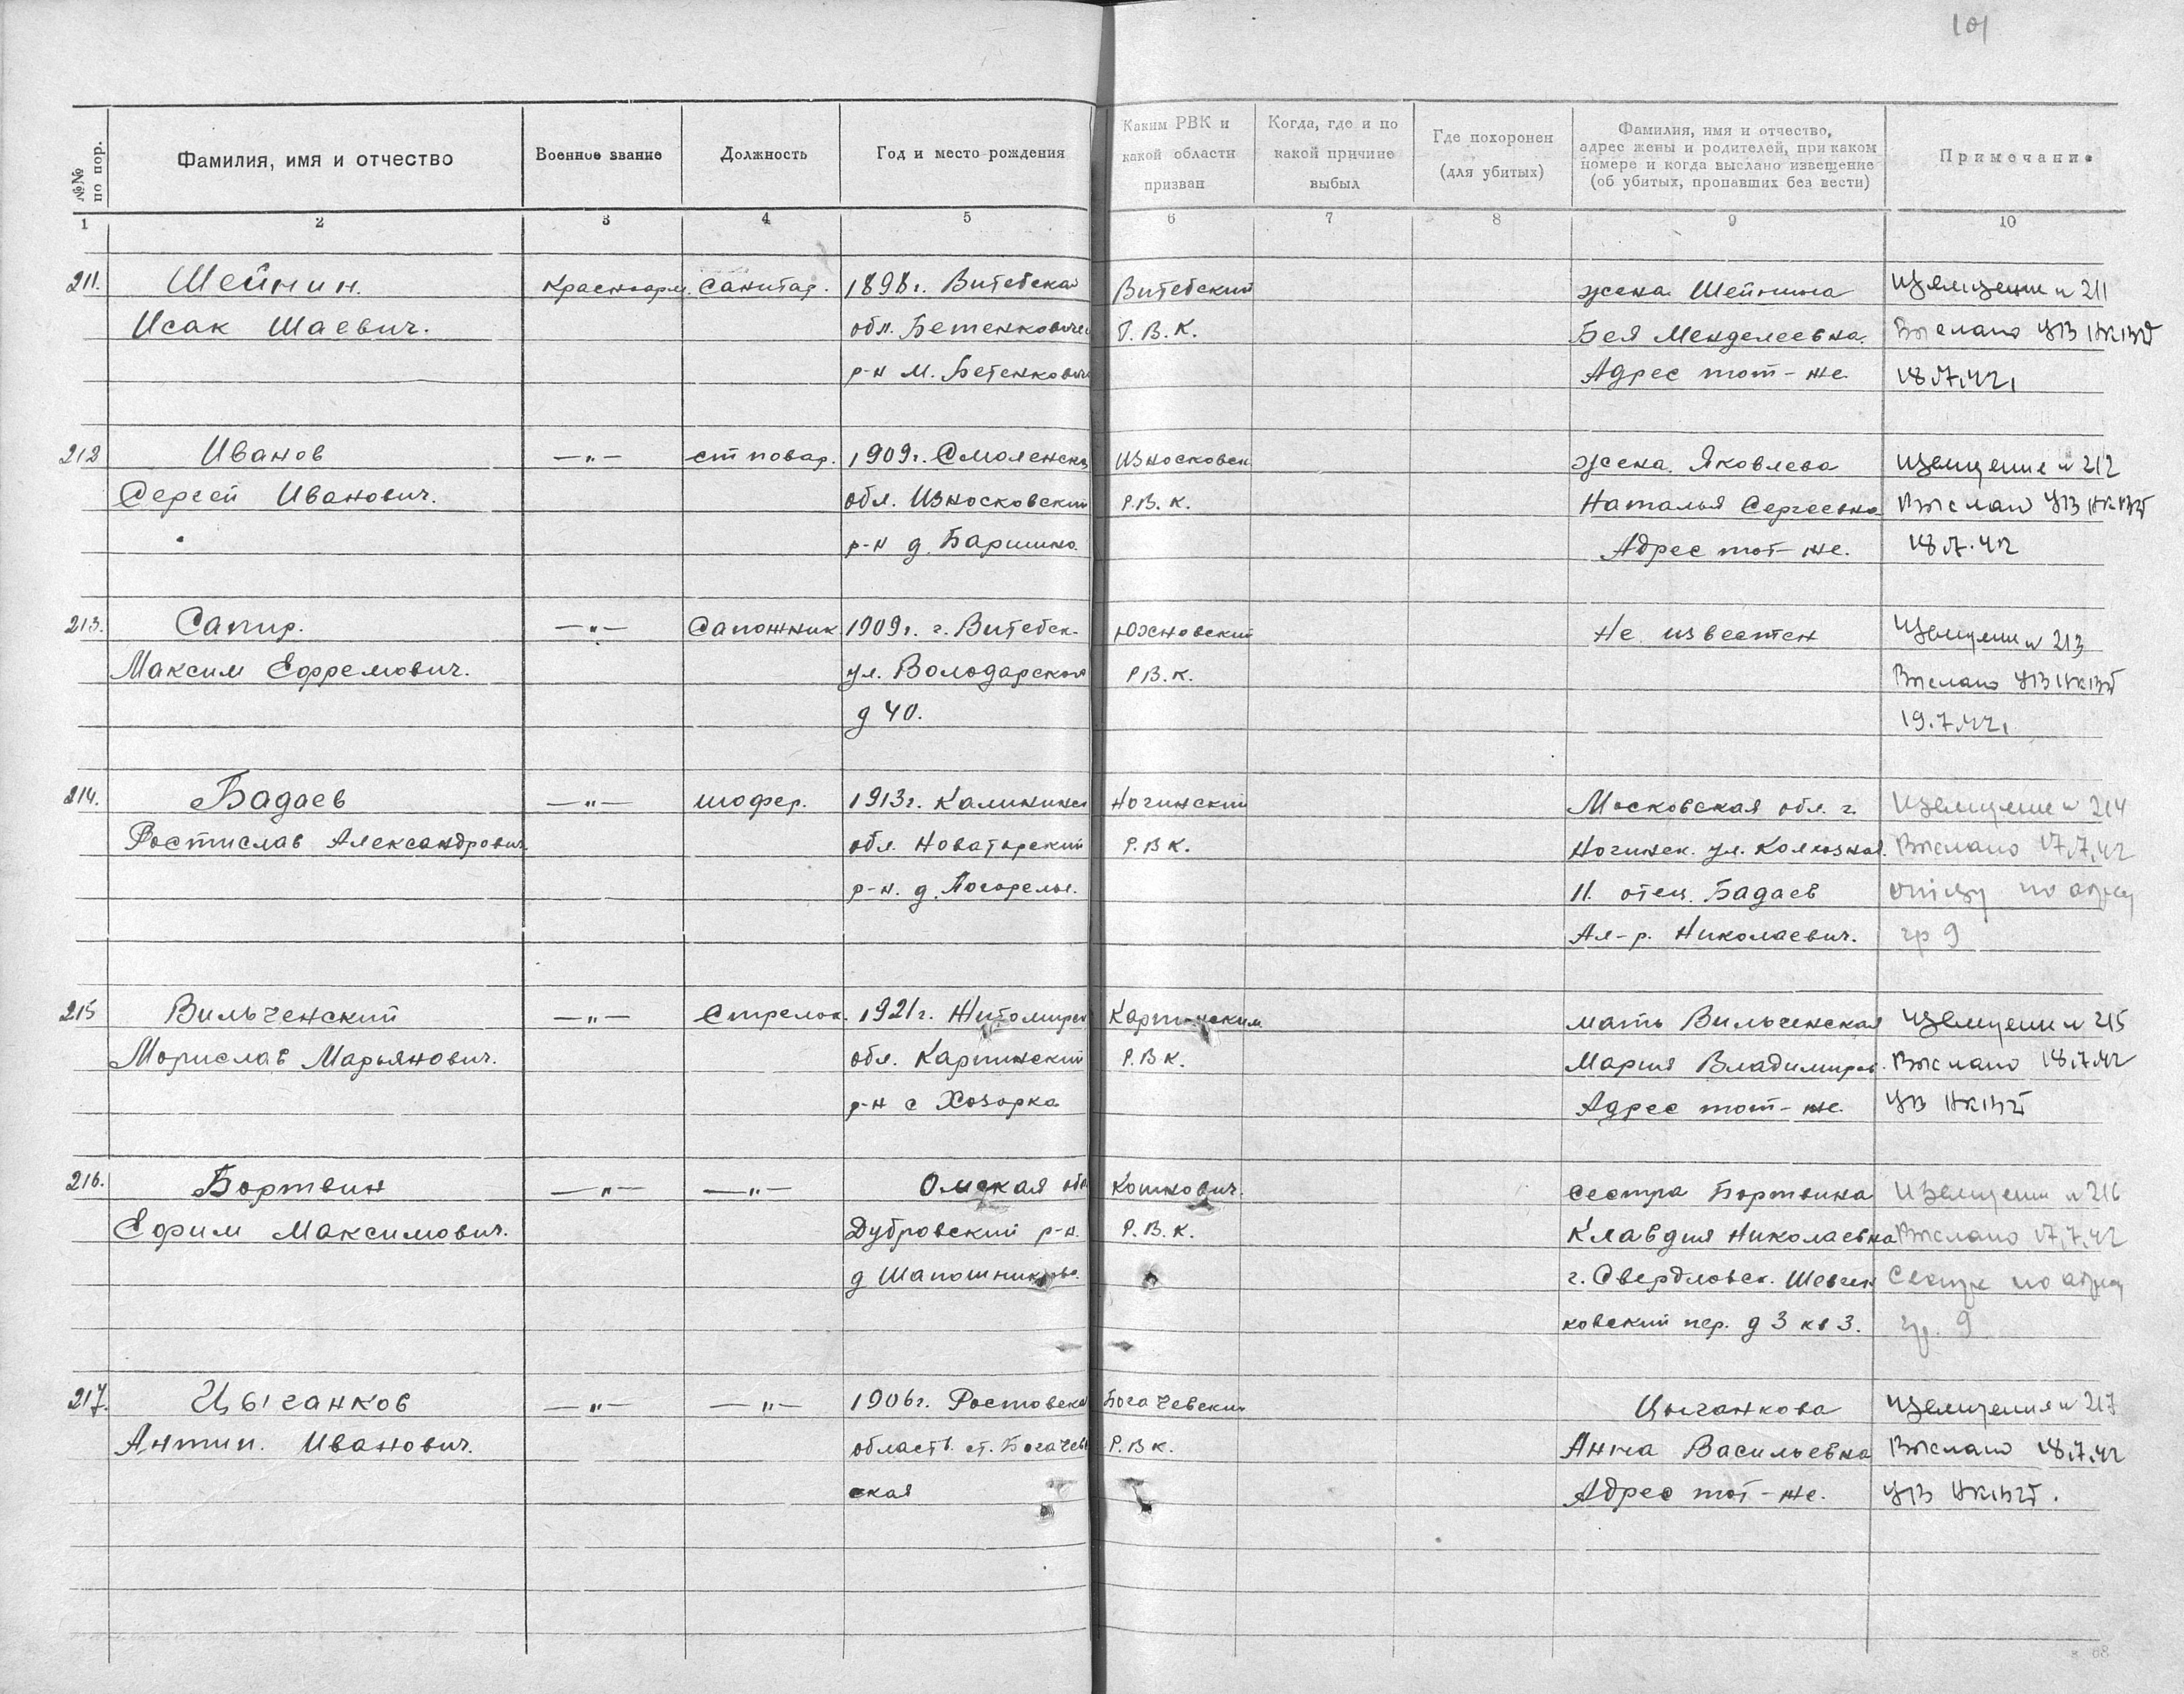 101
№№ по пор.
Фамилия, имя и отчество
Военное звание
Должность
Год и место рождения
Каким РВК и какой области призван
Когда, где и по какой причине выбыл
Где похоронен (для убитых)
Фамилия, имя и отчество, адрес жены и родителей, при каком номере и когда выслано извещение (об убитых, пропавших без вести)
Примечание
1 2 3 4 5 6 7 8 9 10
211. Шейнин. Красноарм. Санитар. 1898г. Витебская Витебский жена Шейнина Извещение № 211
Исак Шаевич. обл. Бешенкович Р.В.К. Бея Менделеевна. Выслано УВ НКВД
р-н М. Бешенкович Адрес тот-же. 18.7.42,
212 Иванов —"— ст повар. 1909г. Смоленска Износковск жена. Яковлева Извещение № 212
Сергей Иванович. обл. Износковский Р.В.К. Наталья Сергеевна Выслано УВ НКВД
р-н д. Баришно. Адрес тот-же. 18.7.42
213. Сапир. —"— Сапожник 1909г. г. Витебск. Юхновский Не известен Извещение № 213
Максим Ефремович. ул. Володарская Р.В.К. Выслано УВ НКВД
д 40. 19.7.42,
214. Бадаев —"— шофер. 1913г. Калининск Ногинский Московская обл. г. Извещение № 214
Ростислав Александрович. обл. Новаторский Р.В.К. Ногинск. ул. Колхозная. Выслано 17.7.42
р-н. д. Погорелье. 11. отец. Бадаев отцу по адресу
Ал-р. Николаевич. гр 9
215 Вильченский —"— Стрелок. 1921г. Житомирск Карпинским мать Вильченская Извещение № 215
Морислав Марьянович. обл. Карпинский Р.В.К. Мария Владимиров. Выслано 18.7.42
р-н с Хозарка Адрес тот-же. УВ НКВД
216. Бортвин —"— —"— Омская обл Кошкович. Сестра Бортвина Извещение № 216
Ефим Максимович. Дубровский р-н. Р.В.К. Клавдия Николаевна Выслано 17.7.42
д Шапошниково. г. Свердловск. Шевчен Сестре по адресу
ковский пер. д 3 кв 3. гр. 9
217. Цыганков —"— —"— 1906г. Ростовска Богачевским Цыганкова Извещение № 217
Антип. Иванович. область. ст. Богачев Р.В.К. Анна Васильевна Выслано 18.7.42
ская Адрес тот-же. УВ НКВД.